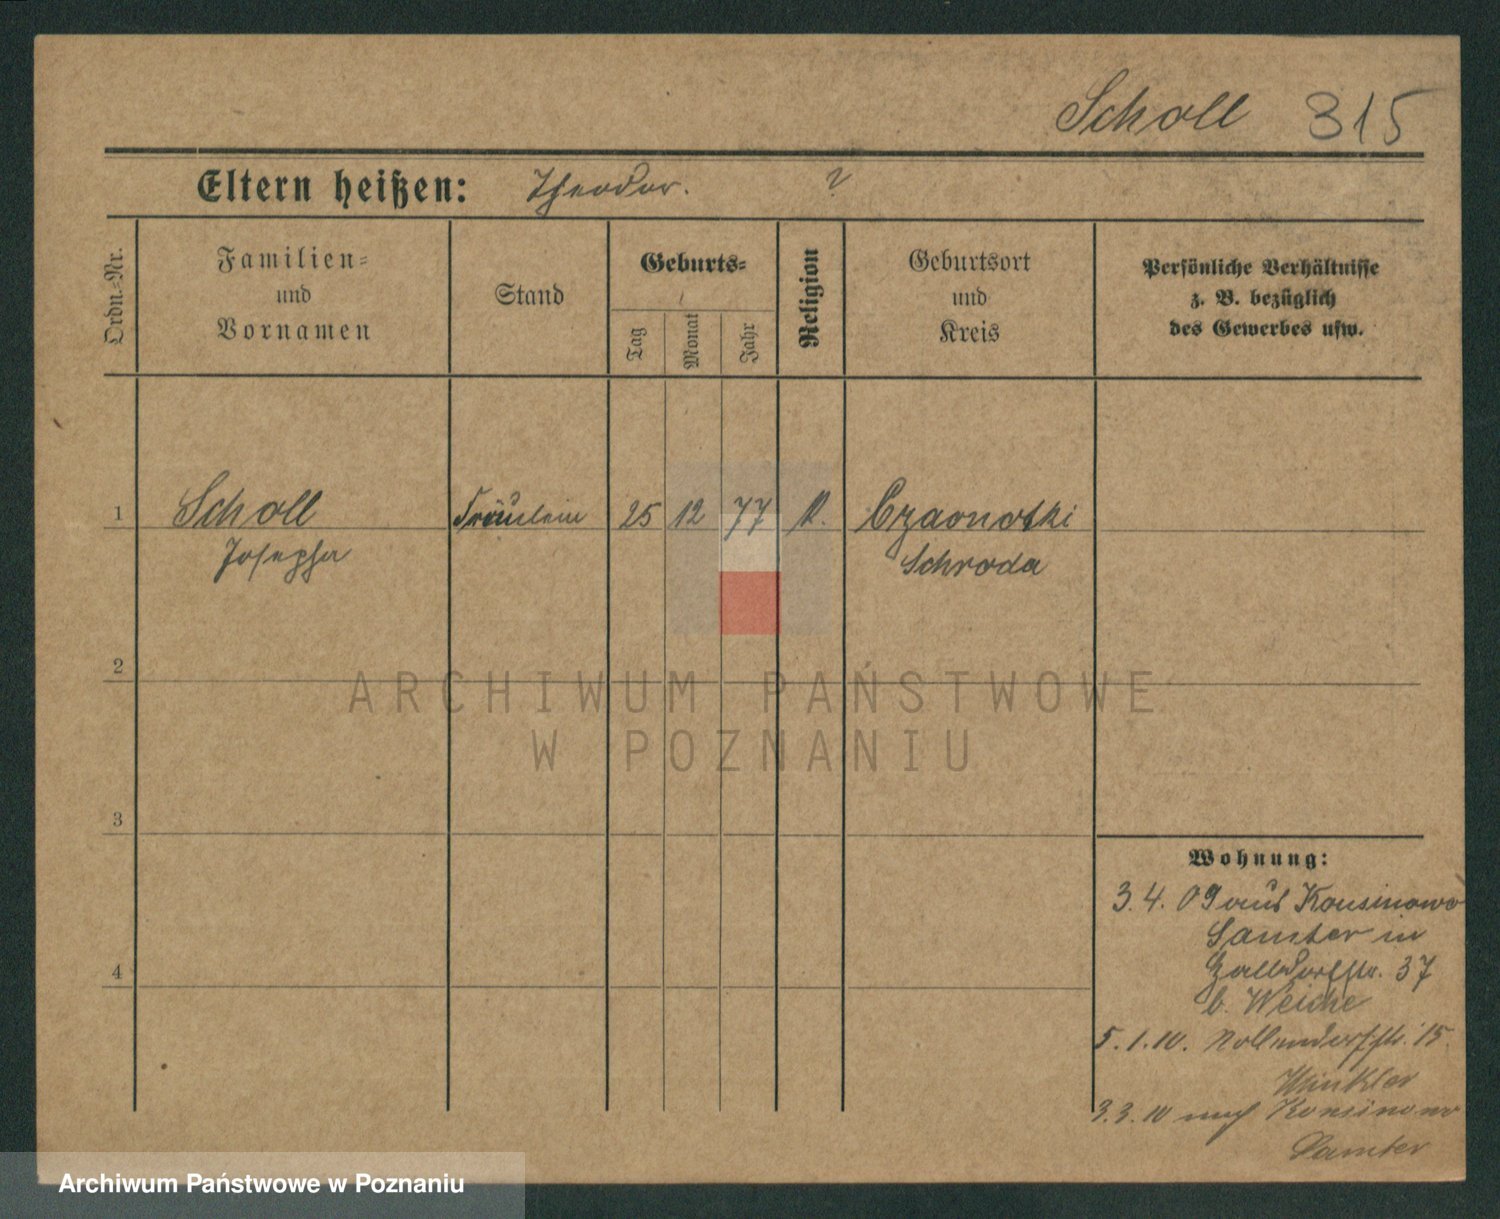 Scholl 315
Eltern heißen: Theodor. ?
Ordn.-Nr.
Familien-
und
Vornamen
Stand
Geburts-
Tag
Monat
Jahr
Religion
Geburtsort
und
Kreis
Persönliche Verhältnisse
z. B. bezüglich
des Gewerbes usw.
1 Scholl Fräulein 25 12 77 K.
Josepha Schroda
2
3
4
ARCHIWUM PAŃSTWOWE
W POZNANIU
Wohnung:
3.4.09 aus Konsinowo
Samter in
37
b. Weiche
5.1.10. Nollendorfstr. 15
Winkler
3.3.10 nach Konsinowo
Samter
Archiwum Państwowe w Poznaniu